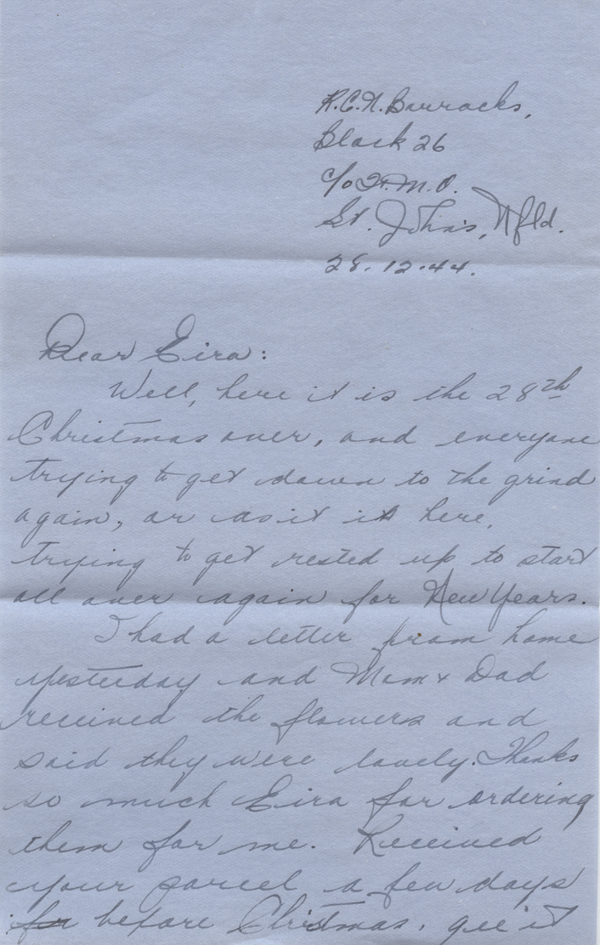 R.C.N. Barracks,
Block 26
c/o F.M.O.
St. John's, Nfld.
28.12.44.
Dear Eira:
Well, here it is the 28th
Christmas over, and everyone
trying to get down to the grind
again, or as it is here,
trying to get rested up to start
all over again for New Years.
I had a letter from home
yesterday and Mom & Dad
received the flowers and
said they were lovely. Thanks
so much Eira for ordering
them for me. Received
your parcel a few days
before Christmas, gee it